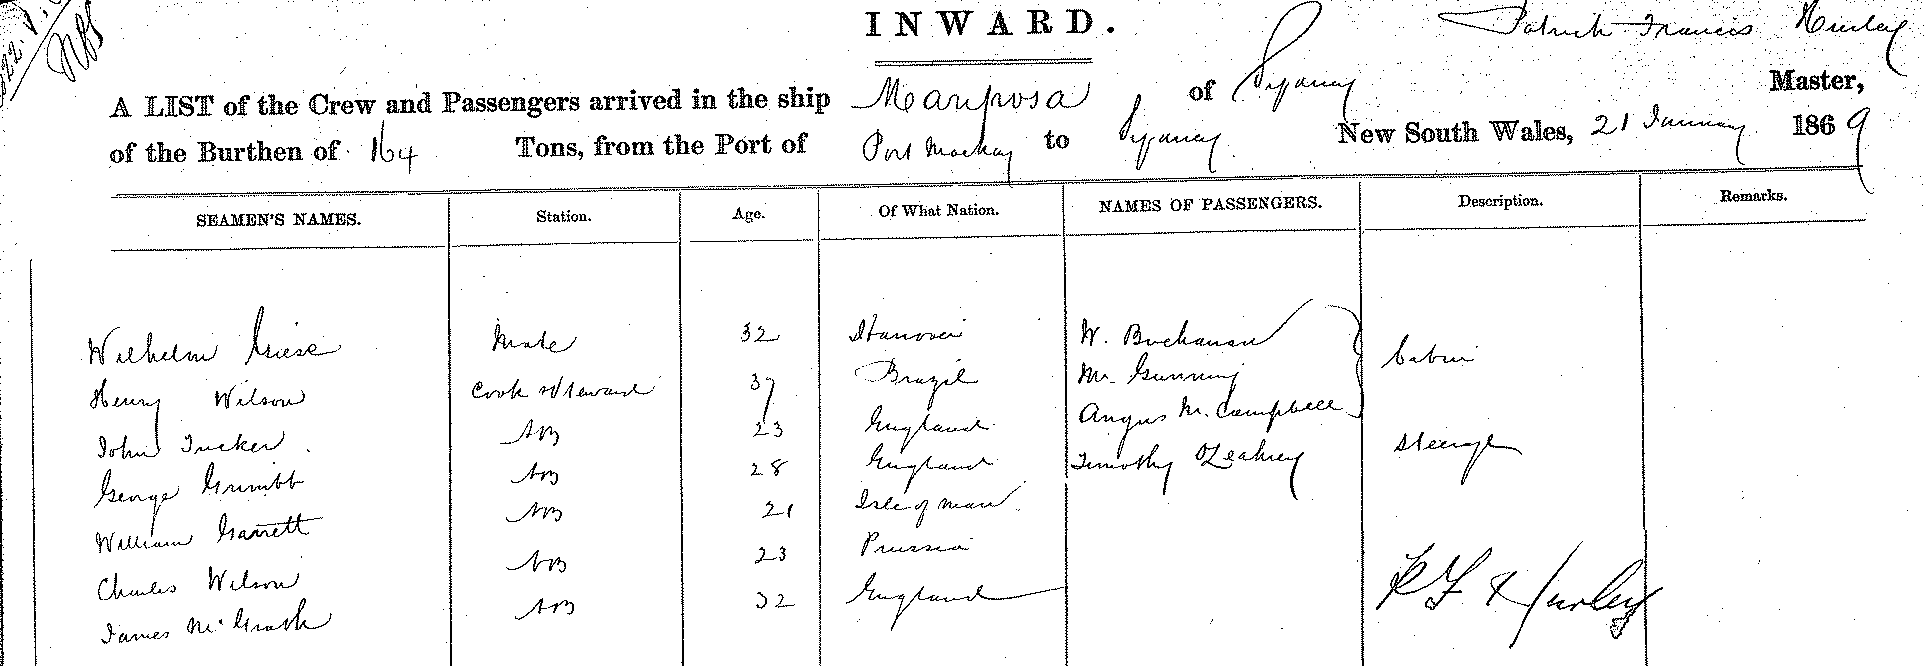 INWARD.
Patrick Francis Hurley
A LIST of the Crew and Passengers arrived in the ship Mariposa of Sydney Master,
of the Burthen of 164 Tons, from the Port of Port Mackay to Sydney New South Wales, 21 January 1869
SEAMEN'S NAMES. Station. Age. Of What Nation. NAMES OF PASSENGERS. Description. Remarks.
Wilhelm Griese Mate 32 Hanover W. Buchanan Cabin
Henry Wilson Cook & Steward 37 Brazil Mr. Gunning
John Tucker AB 23 England Angus M. Campbell
George AB 28 England Timothy O'Leahey Steerage
William Garrett AB 21 Isle of Man
Charles Wilson AB 23 Prussia
James McGrath AB 32 England
Hurley